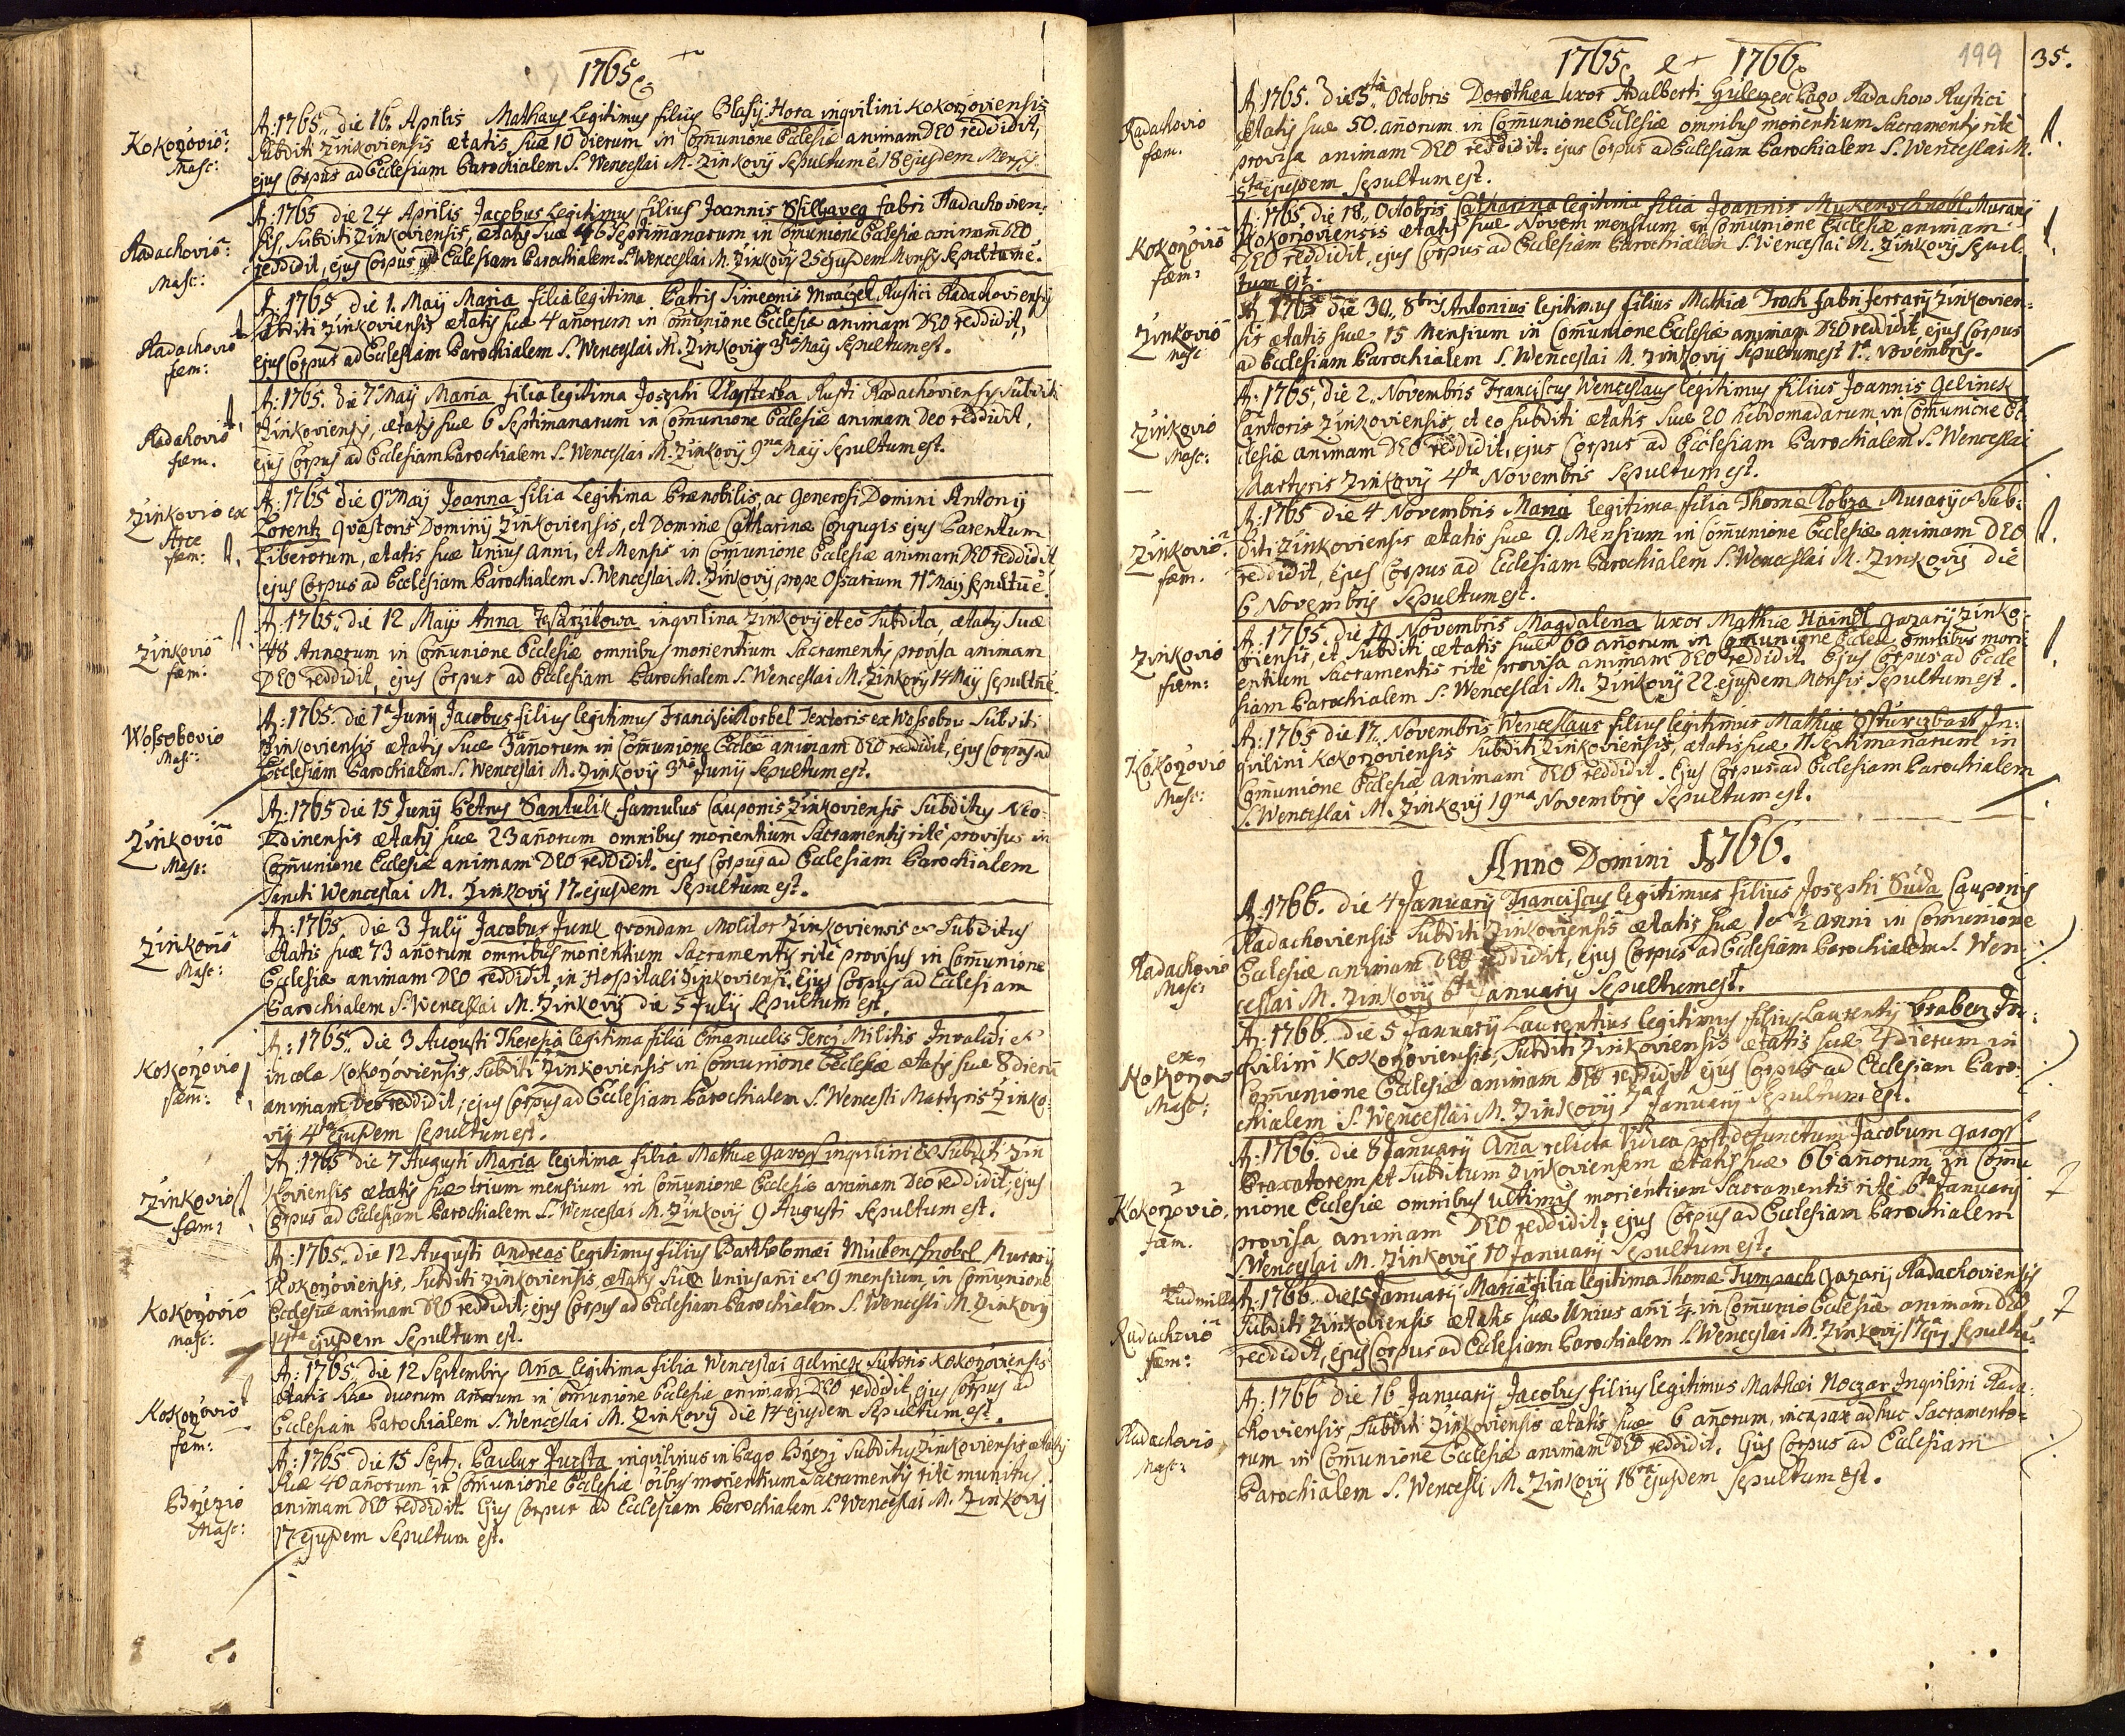 1765
Kokořovio
Masc:
A: 1765. die 16. Aprilis Mathæus Legitimus filius Blasij Hora inqvilini Kokořoviensis
Subditi Žinkoviensis ætatis suæ 10 dierum in Com̄unione Ecclesiæ animam DEO reddidit,
ejus Corpus ad Ecclesiam Parochialem S. Wenceslai M. Žinkovij Sepultum ē 18 ejusdem Mensis.
Radachoviō
Masc:
A: 1765 die 24 Aprilis Jacobus Legitimus filius Joannis fabri Radachovien:
sis, Subditi Žinkoviensis, ætatis suæ 46 Septim̄anarum in Com̄unione Ecclesiæ animam DEO
reddidit, ejus Corpus ad Ecclesiam Parochialem S. Wenceslai M. Žinkovij 25 ejusdem Mensis Sepultum ē.
Radachoviō
fæm:
A: 1765 die 1. Maij Maria filia legitima Patris Simeonis Mraczek Rustici Radachoviensis
Subditi Žinkoviensis ætatis suæ 4 an̄orum in Com̄unione Ecclesiæ animam DEO reddidit,
ejus Corpus ad Ecclesiam Parochialem S. Wenceslai M. Žinkovij 3tia Maij Sepultum est.
Radahoviō
fæm.
A: 1765. die 7 Maij Maria filia legitima Josephi Klasterka Rusti Radachoviensis Subditi
Žinkoviensis, ætatis suæ 6 Septimanarum in Com̄unione Ecclesiæ animam Deo reddidit,
ejus Corpus ad Ecclesiam Parochialem S. Wenceslai M. Žinkovij 9na Maij Sepultum est.
Žinkovio ex
Arce
fæm:
A: 1765 die 9 Maij Joanna filia Legitima Prænobilis, ac Generosi Domini Antonij
Lorentz qvæstoris Dominij Žinkoviensis, et Dominæ Catharinæ Conjugis ejus Parentum
Liberorum, ætatis suæ Unius Anni, et Mensis in Com̄unione Ecclesiæ animam DEO reddidit
ejus Corpus ad Ecclesiam Parochialem S. Wenceslai M. Žinkovij prope Ossarium 11 Maij Sepultum ē.
Žinkoviō
fæm:
A: 1765. die 12 Maij Anna inqvilina Žinkovij et eō Subdita ætatis Suæ
48 Annorum in Com̄unione Ecclesiæ omnibus morientium Sacramentis provisa animam
DEO reddidit, ejus Corpus ad Ecclesiam Parochialem S. Wenceslai M. Žinkovij 14 Maij Sepultum ē.
Wossobovio
Masc:
A: 1765. die 1a Junij Jacobus filius legitimus Francisci Korbel Textoris ex Wossobov Subditi
Žinkoviensis ætatis suæ 3 an̄orum in Com̄unione Ecclesiæ animam DEO reddidit, ejus Corpus ad
Ecclesiam Parochialem S. Wenceslai M. Žinkovij 3tia Junij Sepultum est.
Žinkoviō
Masc:
A: 1765 die 15 Junij Petrus Santulik famulus Cauponis Žinkoviensis Subditus Neo-
Edinensis ætatis suæ 23 an̄orum omnibus morientium Sacramentis rite provisus in
Com̄unione Ecclesiæ animam DEO reddidit. ejus Corpus ad Ecclesiam Parochialem
Sancti Wenceslai M. Žinkovij 17 ejusdem Sepultum est.
Žinkoviō
Masc:
A: 1765. die 3 Julij Jacobus Junk qvondam Molitor Žinkoviensis et Subditus
ætatis suæ 73 an̄orum omnibus morientium Sacramentis rite provisus in Com̄unione
Ecclesiæ animam DEO reddidit, in Hospitali Žinkoviensi. Ejus Corpus ad Ecclesiam
Parochialem S. Wenceslai M. Žinkovij die 5 Julij Sepultum est.
Kokořovio
fæm:
A: 1765. die 3 Augusti Theresia legitima filia Emanuelis Militis Invalidi et
incolæ Kokořoviensis, Subditi Žinkoviensis in Com̄unione Ecclesiæ ætatis suæ 8 dierū
animam Deo reddidit, ejus Corpus ad Ecclesiam Parochialem S. Wencesli Martyris Žinko-
vij 4ta ejusdem Sepultum est.
Žinkovio
fæm:
A: 1765 die 7 Augusti Maria legitima filia Mathiæ Gaross inqvilini et Subditi Žin
koviensis ætatis suæ trium mensium in Com̄unione Ecclesiæ animam Deo reddidit, ejus
Corpus ad Ecclesiam Parochialem S. Wenceslai M. Žinkovij 9 Augusti Sepultum est.
Kokořoviō
Masc:
A: 1765. die 12 Augusti Andreas legitimus filius Bartholomæi Muckenschnobel Murarij
Kokořoviensis, Subditi Žinkoviensis, ætatis suæ Unius an̄i et 9 mensium, in Com̄unione
Ecclesiæ animam DEO reddidit, ejus Corpus ad Ecclesiam Parochialem S. Wencesli M. Žinkovij
14ta ejusdem Sepultum est.
Kokořovio
fæm:
A: 1765. die 12 Septembris An̄a legitima filia Wenceslai Gelinek Sutoris Kokořoviensis
ætatis suæ duorum an̄orum in Com̄unione Ecclesiæ animam DEO reddidit ejus Corpus ad
Ecclesiam Parochialem S. Wenceslai M. Žinkovij die 14 ejusdem Sepultum est.
Březio
Masc:
A: 1765 die 15 Sept: Paulus Jursta inqvilinus in Pago Březj Subditus Žinkoviensis ætatis
Suæ 40 an̄orum in Com̄unione Ecclesiæ oībus morientium Sacramentis rite munitus
animam DEO reddidit. Ejus Corpus ad Ecclesiam Parochialem S. Wenceslai M. Žinkovij
17 ejusdem Sepultum est.
1765 et 1766
199
35.
Radachovio
fæm.
A: 1765. die 3tia Octobris Dorothea Uxor Adalberti ex Pago Radachow Rustici
ætatis suæ 50. an̄orum in Com̄unione Ecclesiæ omnibus morientium Sacramentis rite
provisa animam DEO reddidit. ejus Corpus ad Ecclesiam Parochialem S. Wenceslai M.
5ta ejusdem Sepultum est.
Kokořoviō
fæm:
A: 1765 die 18. Octobris Catharina legitima filia Joannis Mukenschnobl Murarij
Kokořoviensis ætatis suæ Novem mensium in Com̄unione Ecclesiæ animam
DEO reddidit, ejus Corpus ad Ecclesiam Parochialem S. Wenceslai M. Žinkovij Sepul-
tum est.
Žinkoviō
Masc
A: 1765 die 30. 8bris Antonius legitimus filius Mathiæ Troch fabri ferrarij Žinkovien:
sis ætatis suæ 15 Mensium in Com̄unione Ecclesiæ animam DEO reddidit ejus Corpus
ad Ecclesiam Parochialem S. Wenceslai M. Žinkovij Sepultum est 1a Novembris.
Žinkovio
Masc:
A: 1765, die 2. Novembris Franciscus Wenceslaus legitimus filius Joannis Gelinek
Cantoris Žinkoviensis, et eo Subditi ætatis suæ 20 hebdomadarum in Com̄unione Ec
clesiæ animam DEO reddidit, ejus Corpus ad Ecclesiam Parochialem S. Wenceslai
Martyris Žinkovij 4ta Novembris Sepultum est.
Žinkovio
fæm.
A: 1765 die 4 Novembris Maria legitima filia Thomæ Kobza Murarij et Sub:
diti Žinkoviensis ætatis suæ 9. Mensium in Com̄unione Ecclesiæ animam DEO
reddidit, ejus Corpus ad Ecclesiam Parochialem S. Wenceslai M. Žinkovij die
6 Novembris Sepultum est.
Žinkovio
fæm:
A: 1765. die 19 Novembris Magdalena Uxor Mathiæ Haindl gazarij Žinko:
viensis, et Subditi ætatis suæ 60 an̄orum in Com̄unione Ecclesiæ omnibus mori-
entium Sacramentis rite provisa animam DEO reddidit. Ejus Corpus ad Eccle
siam Parochialem S. Wenceslai M. Žinkovij 22 ejusdem Mensis Sepultum est.
Kokořovio
Masc:
A: 1765 die 17. Novembris Wenceslaus filius legitimus Mathiæ In:
qvilini Kokořoviensis Subditi Žinkoviensis, ætatis suæ 11 Septimanarum in
Com̄unione Ecclesiæ animam DEO reddidit. Ejus Corpus ad Ecclesiam Parochialem
S. Wenceslai M. Žinkovij 19na Novembris Sepultum est.
Anno Domini 1766.
Radachovio
Masc:
A: 1766. die 4 Januarij Franciscus legitimus filius Josephi Suda Cauponis
Radachoviensis Subditi Žinkoviensis ætatis suæ 1 et ½ anni in Com̄unione
Ecclesiæ animam DEO reddidit, ejus Corpus ad Ecclesiam Parochialem S. Wen-
ceslai M. Žinkovij 6ta Januarij Sepultum est.
ex
Kokořov
Masc:
A: 1766. die 5 Januarij Laurentius legitimus filius Laurentij Braben In:
qvilini Kokořoviensis, Subditi Žinkoviensis ætatis suæ 4 dierum in
Com̄unione Ecclesiæ animam DEO reddidit ejus Corpus ad Ecclesiam Paro-
chialem S. Wenceslai M. Žinkovij 7a Januarij Sepultum est.
Kokořovio,
fæm.
A: 1766. die 8 Januarij An̄a relicta Vidua post defunctum Jacobum Gaross
Braxatorem et Subditum Žinkoviensem ætatis suæ 66 an̄orum in Com̄u
nione Ecclesiæ omnibus ultimis morientium Sacramentis rite 6ta Januarij
provisa animam DEO reddidit, ejus Corpus ad Ecclesiam Parochialem
S. Wenceslai M. Žinkovij 10 Januarij Sepultum est.
Ludmilla
Radachoviō
fæm:
A: 1766. die 15 Januarij Maria + filia legitima Thomæ Tumpach Gazarij Radachoviensis
Subditi Žinkoviensis ætatis suæ Unius an̄i ¼ in Com̄unio Ecclesiæ animam DEO
reddidit, ejus Corpus ad Ecclesiam Parochialem S. Wenceslai M. Žinkovij 17 ejus Sepultū.
Radachovio
Masc:
A: 1766 die 16 Januarij Jacobus filius legitimus Mathæi Noczar Inqvilini Rada-
choviensis, Subditi Žinkoviensis ætatis suæ 6 an̄orum, incapax adhuc Sacramento-
rum in Com̄unione Ecclesiæ animam DEO reddidit. Ejus Corpus ad Ecclesiam
Parochialem S. Wencesli M. Žinkovij 18va ejusdem Sepultum est.